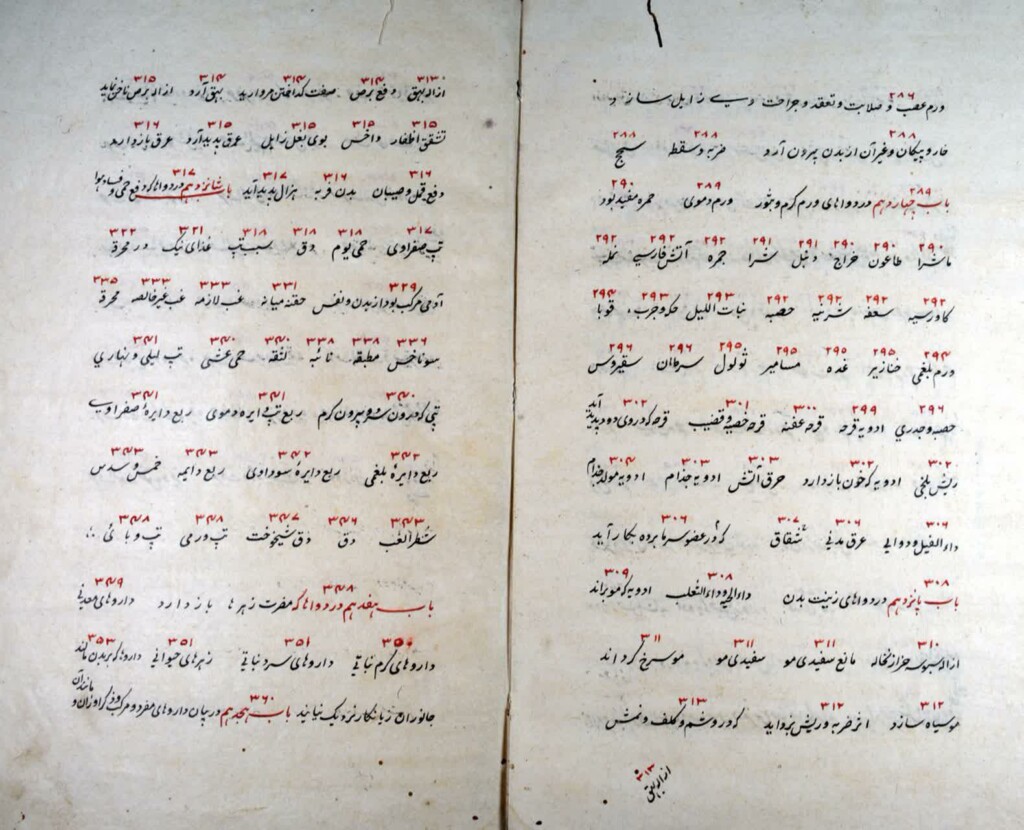 ۲۸۶
ورم عصب و صلابت و تعقد و جراحت وی زایل سازد
۲۸۸ ۲۸۸ ۲۸۸
خار و پیکان و غیر آن از بدن بیرون آرد ضربه و سقطه سحج
۲۸۹ ۲۸۹ ۲۹۰
باب چهاردهم در دواهای ورم گرم و بثور ورم دموی حمره مفید بود
۲۹۰ ۲۹۰ ۲۹۰ ۲۹۱ ۲۹۱ ۲۹۲ ۲۹۲ ۲۹۲
ماشرا طاعون خراج دنبل شرا جمره آتش فارسی نمله
۲۹۲ ۲۹۲ ۲۹۲ ۲۹۲ ۲۹۳ ۲۹۳ ۲۹۴
کاورسیه سعفه شرینه حصبه نبات اللیل حکه و جرب قوبا
۲۹۴ ۲۹۵ ۲۹۵ ۲۹۵ ۲۹۵ ۲۹۶ ۲۹۵
ورم بلغمی خنازیر غده مسامیر ثولول سرطان سقیروس
۲۹۶ ۲۹۹ ۳۰۰ ۳۰۱ ۳۰۲
حصبه و جدری ادویه قرحه قرحه عفنه قرحه خصیه و قضیب قرحه که دروی دود پدید آید
۳۰۲ ۳۰۲ ۳۰۳ ۳۰۳ ۳۰۴
ریش بلخی ادویه که خون باز دارد حرق آتش ادویه جذام ادویه مولد جذام
۳۰۶ ۳۰۶ ۳۰۷ ۳۰۶
داء الفیل و دوالی عرق مدنی شقاق که در عضو سرما برده بکار آید
۳۰۸ ۳۰۸ ۳۰۹
باب پانزدهم در دواهای زینت بدن داء الحیه و داء الثعلب ادویه که مو براند
۳۱۰ ۳۱۱ ۳۱۱ ۳۱۱
ازاله سبوسه حزاز نخاله مانع سفیدی مو سفیدی مو مو سرخ گرداند
۳۱۲ ۳۱۲ ۳۱۳
مو سیاه سازد اثر ضربه و ریش بزداید که در وشم و کلف و نمش
۳۱۳
ازاله بهق
۳۱۳ ۳۱۴ ۳۱۴ ۳۱۴ ۳۱۵
ازاله بهق دفع برص صفت گداختن مروارید بهق آرد ازاله برص ناخن نماید
۳۱۵ ۳۱۵ ۳۱۵ ۳۱۵ ۳۱۶
تشقق اظفار داخس بوی بغل زایل عرق پدید آرد عرق باز دارد
۳۱۶ ۳۱۶ ۳۱۷ ۳۱۷
دفع قمل و صیبان بدن فربه هزال پدید آید باب شانزدهم در دواها که دفع حمی و فساد هوا
۳۱۷ ۳۱۸ ۳۱۸ ۳۱۸ ۳۲۱ ۳۲۲
تب صفراوی حمی یوم دق سبب تب غذای نیک در محرقه
۳۲۹ ۳۳۱ ۳۳۳ ۳۳۳ ۳۳۵
آدمی مرکب بود از بدن و نفس حقنه میانه غب لازمه غب غیر خالصه محرقه
۳۳۶ ۳۳۸ ۳۳۸ ۳۴۰ ۳۴۰ ۳۴۱
سوناخس مطبقه نائبه لثقه حمی غشی تب لیلی و نهاری
۳۴۰ ۳۴۱ ۳۴۱
تبی که درون سرد و بیرون گرم ربع تب دایره دموی ربع دایرهٔ صفراوی
۳۴۲ ۳۴۲ ۳۴۳ ۳۴۳
ربع دایرهٔ بلغمی ربع دایرهٔ سوداوی ربع دایمه خمس و سدس
۳۴۳ ۳۴۶ ۳۴۷ ۳۴۸ ۳۴۸
شطر الغب دق دق شیخوخت تب ورمی تب وبائی
۳۴۸ ۳۴۹
باب هفدهم در دواها که مضرت زهرها باز دارد داروهای معدنی
۳۵۰ ۳۵۱ ۳۵۱ ۳۵۳
داروهای گرم نباتی داروهای سرد نباتی زهرهای حیوانی داروها که بر بدن مالند
۳۶۰
جانوران زیانکار نزدیک نیایند باب هجدهم در بیان داروهای مفرد و مرکب و ذکر اوزان و